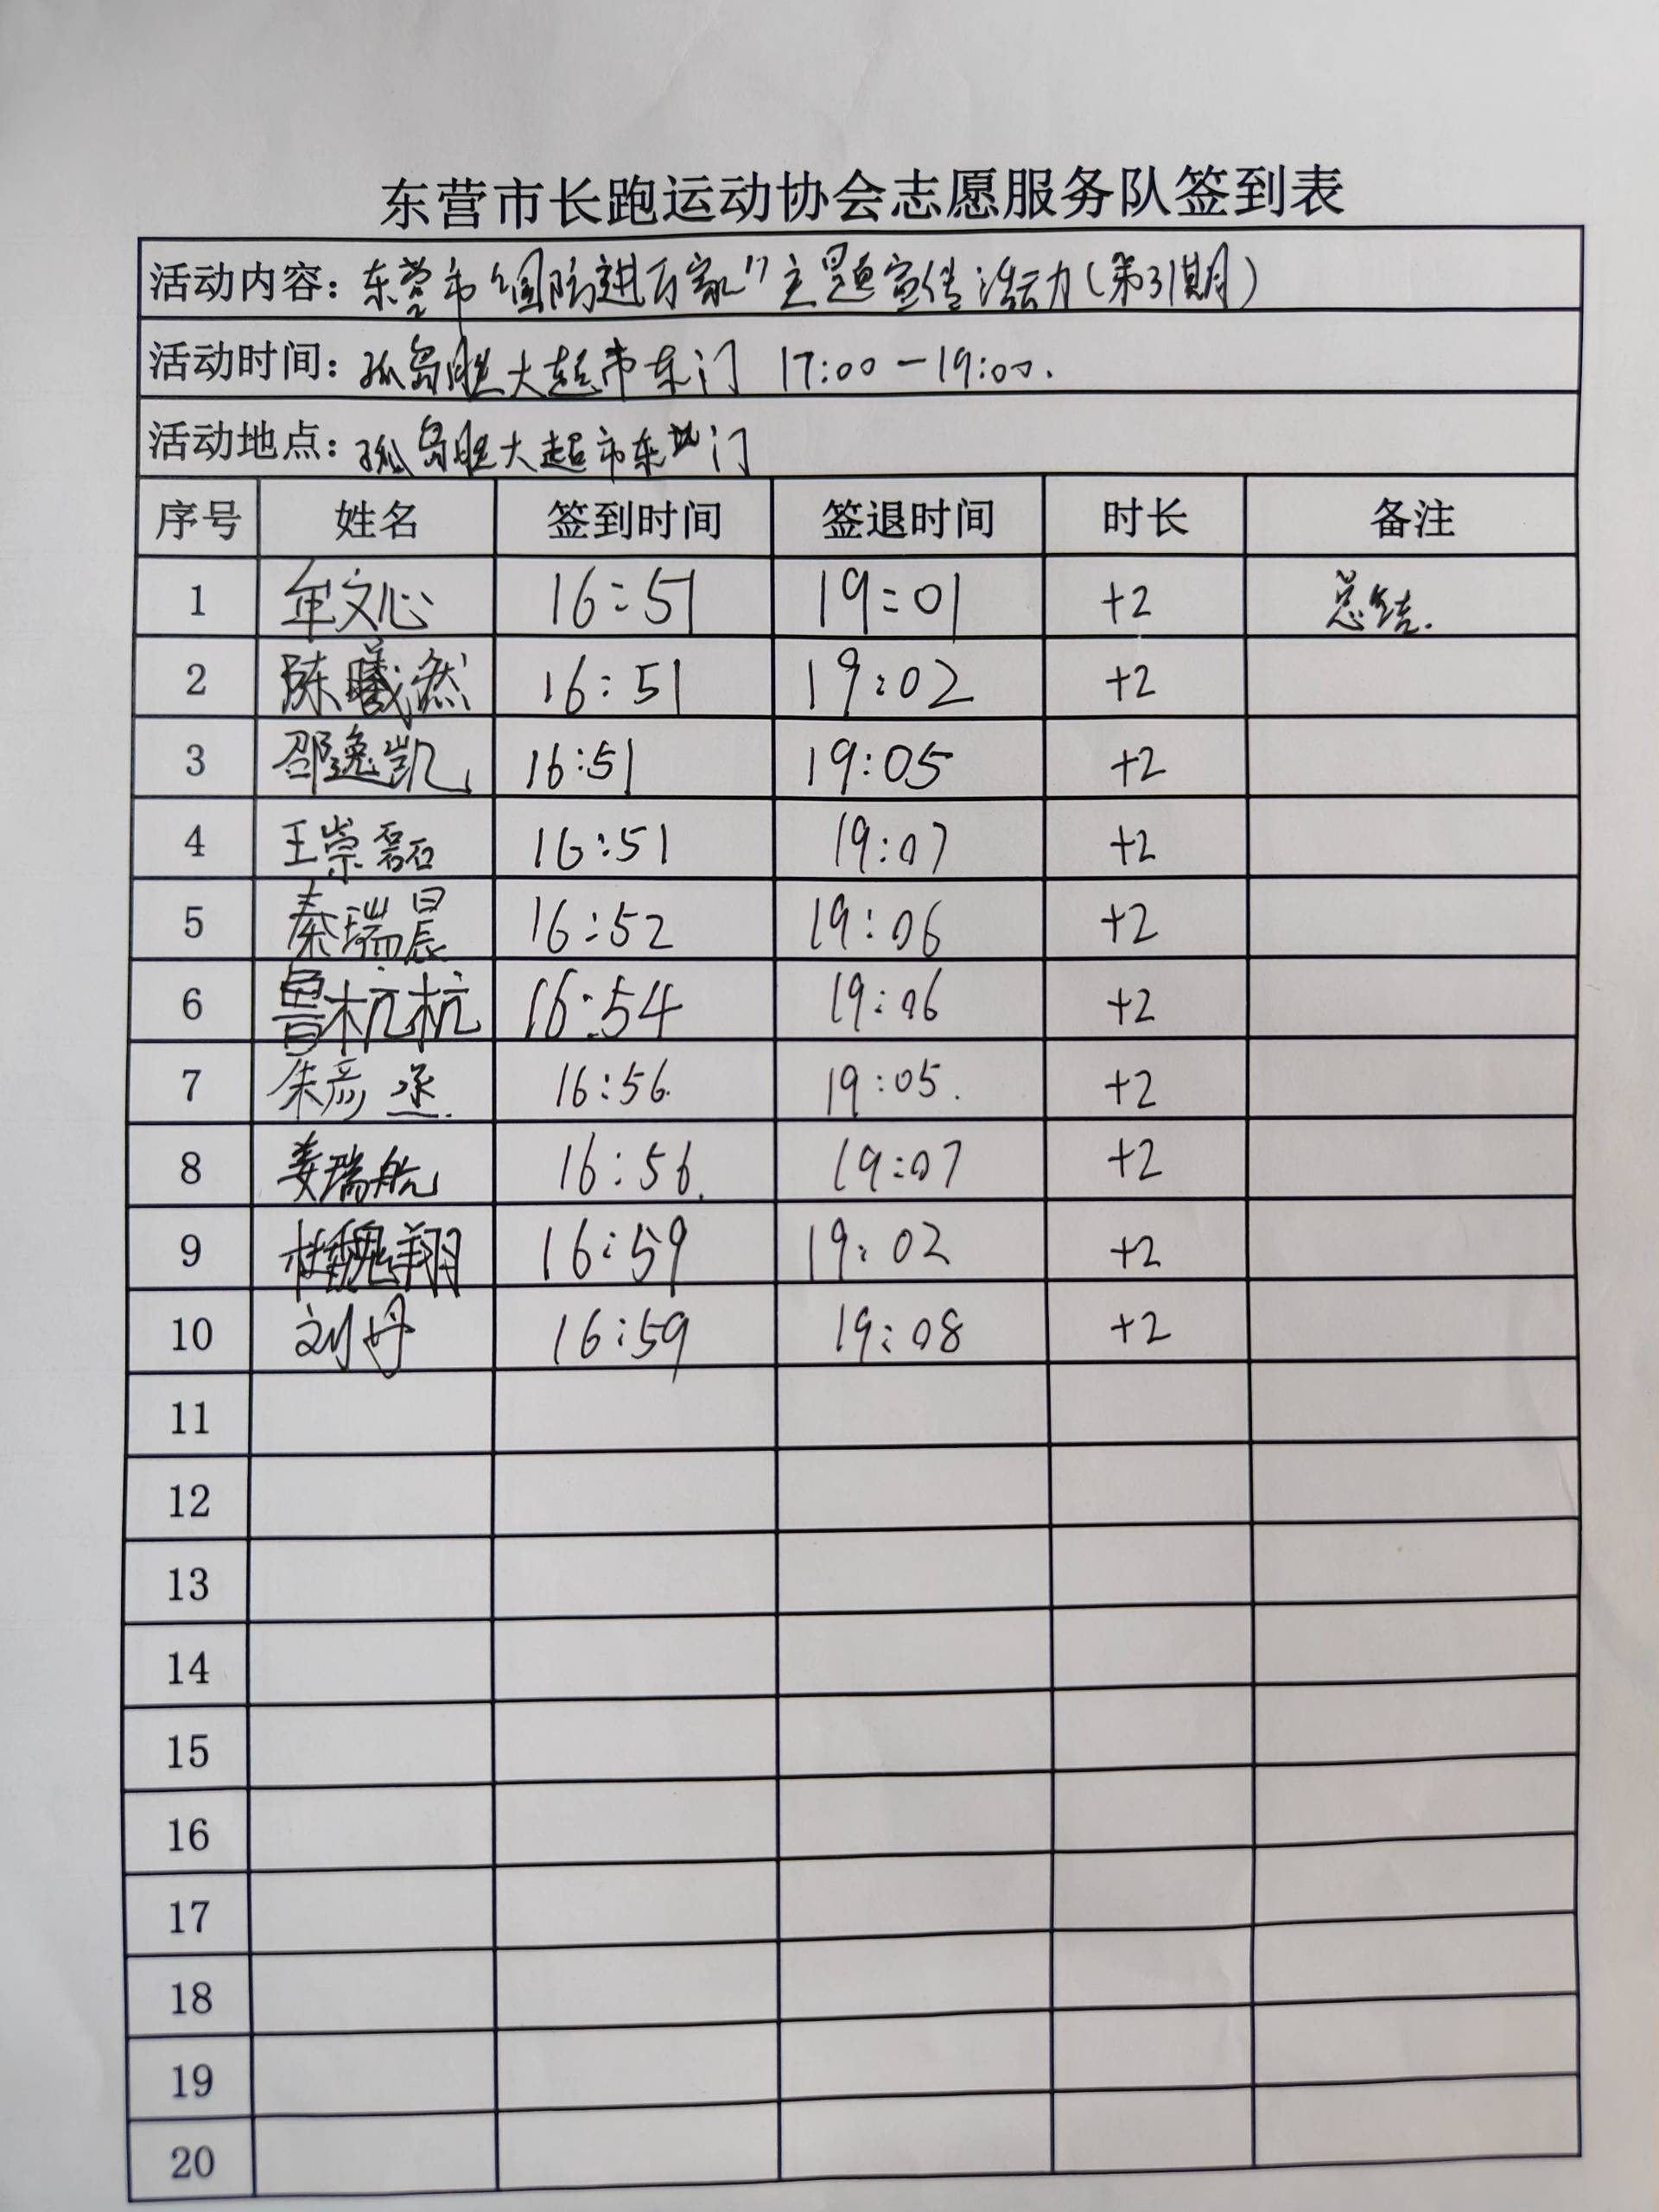 东营市长跑运动协会志愿服务队签到表
活动内容：东营市“国防进万家”主题宣传活动（第31期）
活动时间：孤岛胜大超市东门 17:00-19:00.
活动地点：孤岛胜大超市东北门
序号 姓名 签到时间 签退时间 时长 备注
1 文心 16:51 19:01 +2 总结.
2 陈曦然 16:51 19:02 +2
3 邵逸凯 16:51 19:05 +2
4 王崇磊 16:51 19:07 +2
5 秦瑞晨 16:52 19:06 +2
6 鲁杭杭 16:54 19:06 +2
7 朱彦丞. 16:56. 19:05. +2
8 姜瑞航 16:56. 19:07 +2
9 杜魏翔 16:59 19:02 +2
10 刘丹 16:59 19:08 +2
11
12
13
14
15
16
17
18
19
20